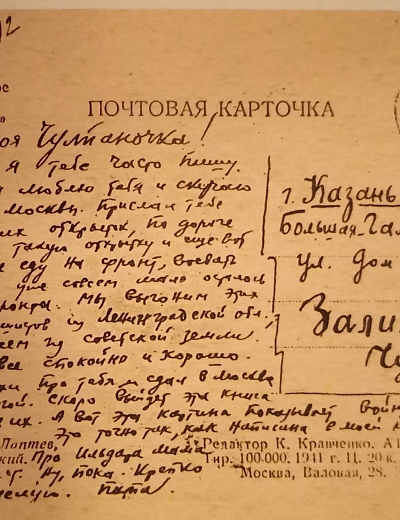 ПОЧТОВАЯ КАРТОЧКА
оя Чулпаночка!
я тебе часто пишу.
люблю тебя и скучаю
Москвы. Прислал тебе
открыток, по дороге
такую открытку и еще вот
еду на фронт, воевать
уже совсем мало осталось
ронта. Мы выгоним этих
шистов из Ленинградской обл.,
ем из советской земли.
все спокойно и хорошо.
хи про тебя и сдал в Москва
ой. Скоро выйдет эта книга
их. А вот эта картина показывает
Это точно так, как написана в моей
Лаптев,
ский. Про Ильдара мама
Ну, пока. Крепко
целую. Папа.
г. Казань
Большая-Гал
ул. дом
Зали
Чу
Редактор К. Кравченко. А
Тир. 100.000. 1941 г. Ц. 20 к.
Москва, Валовая, 28.